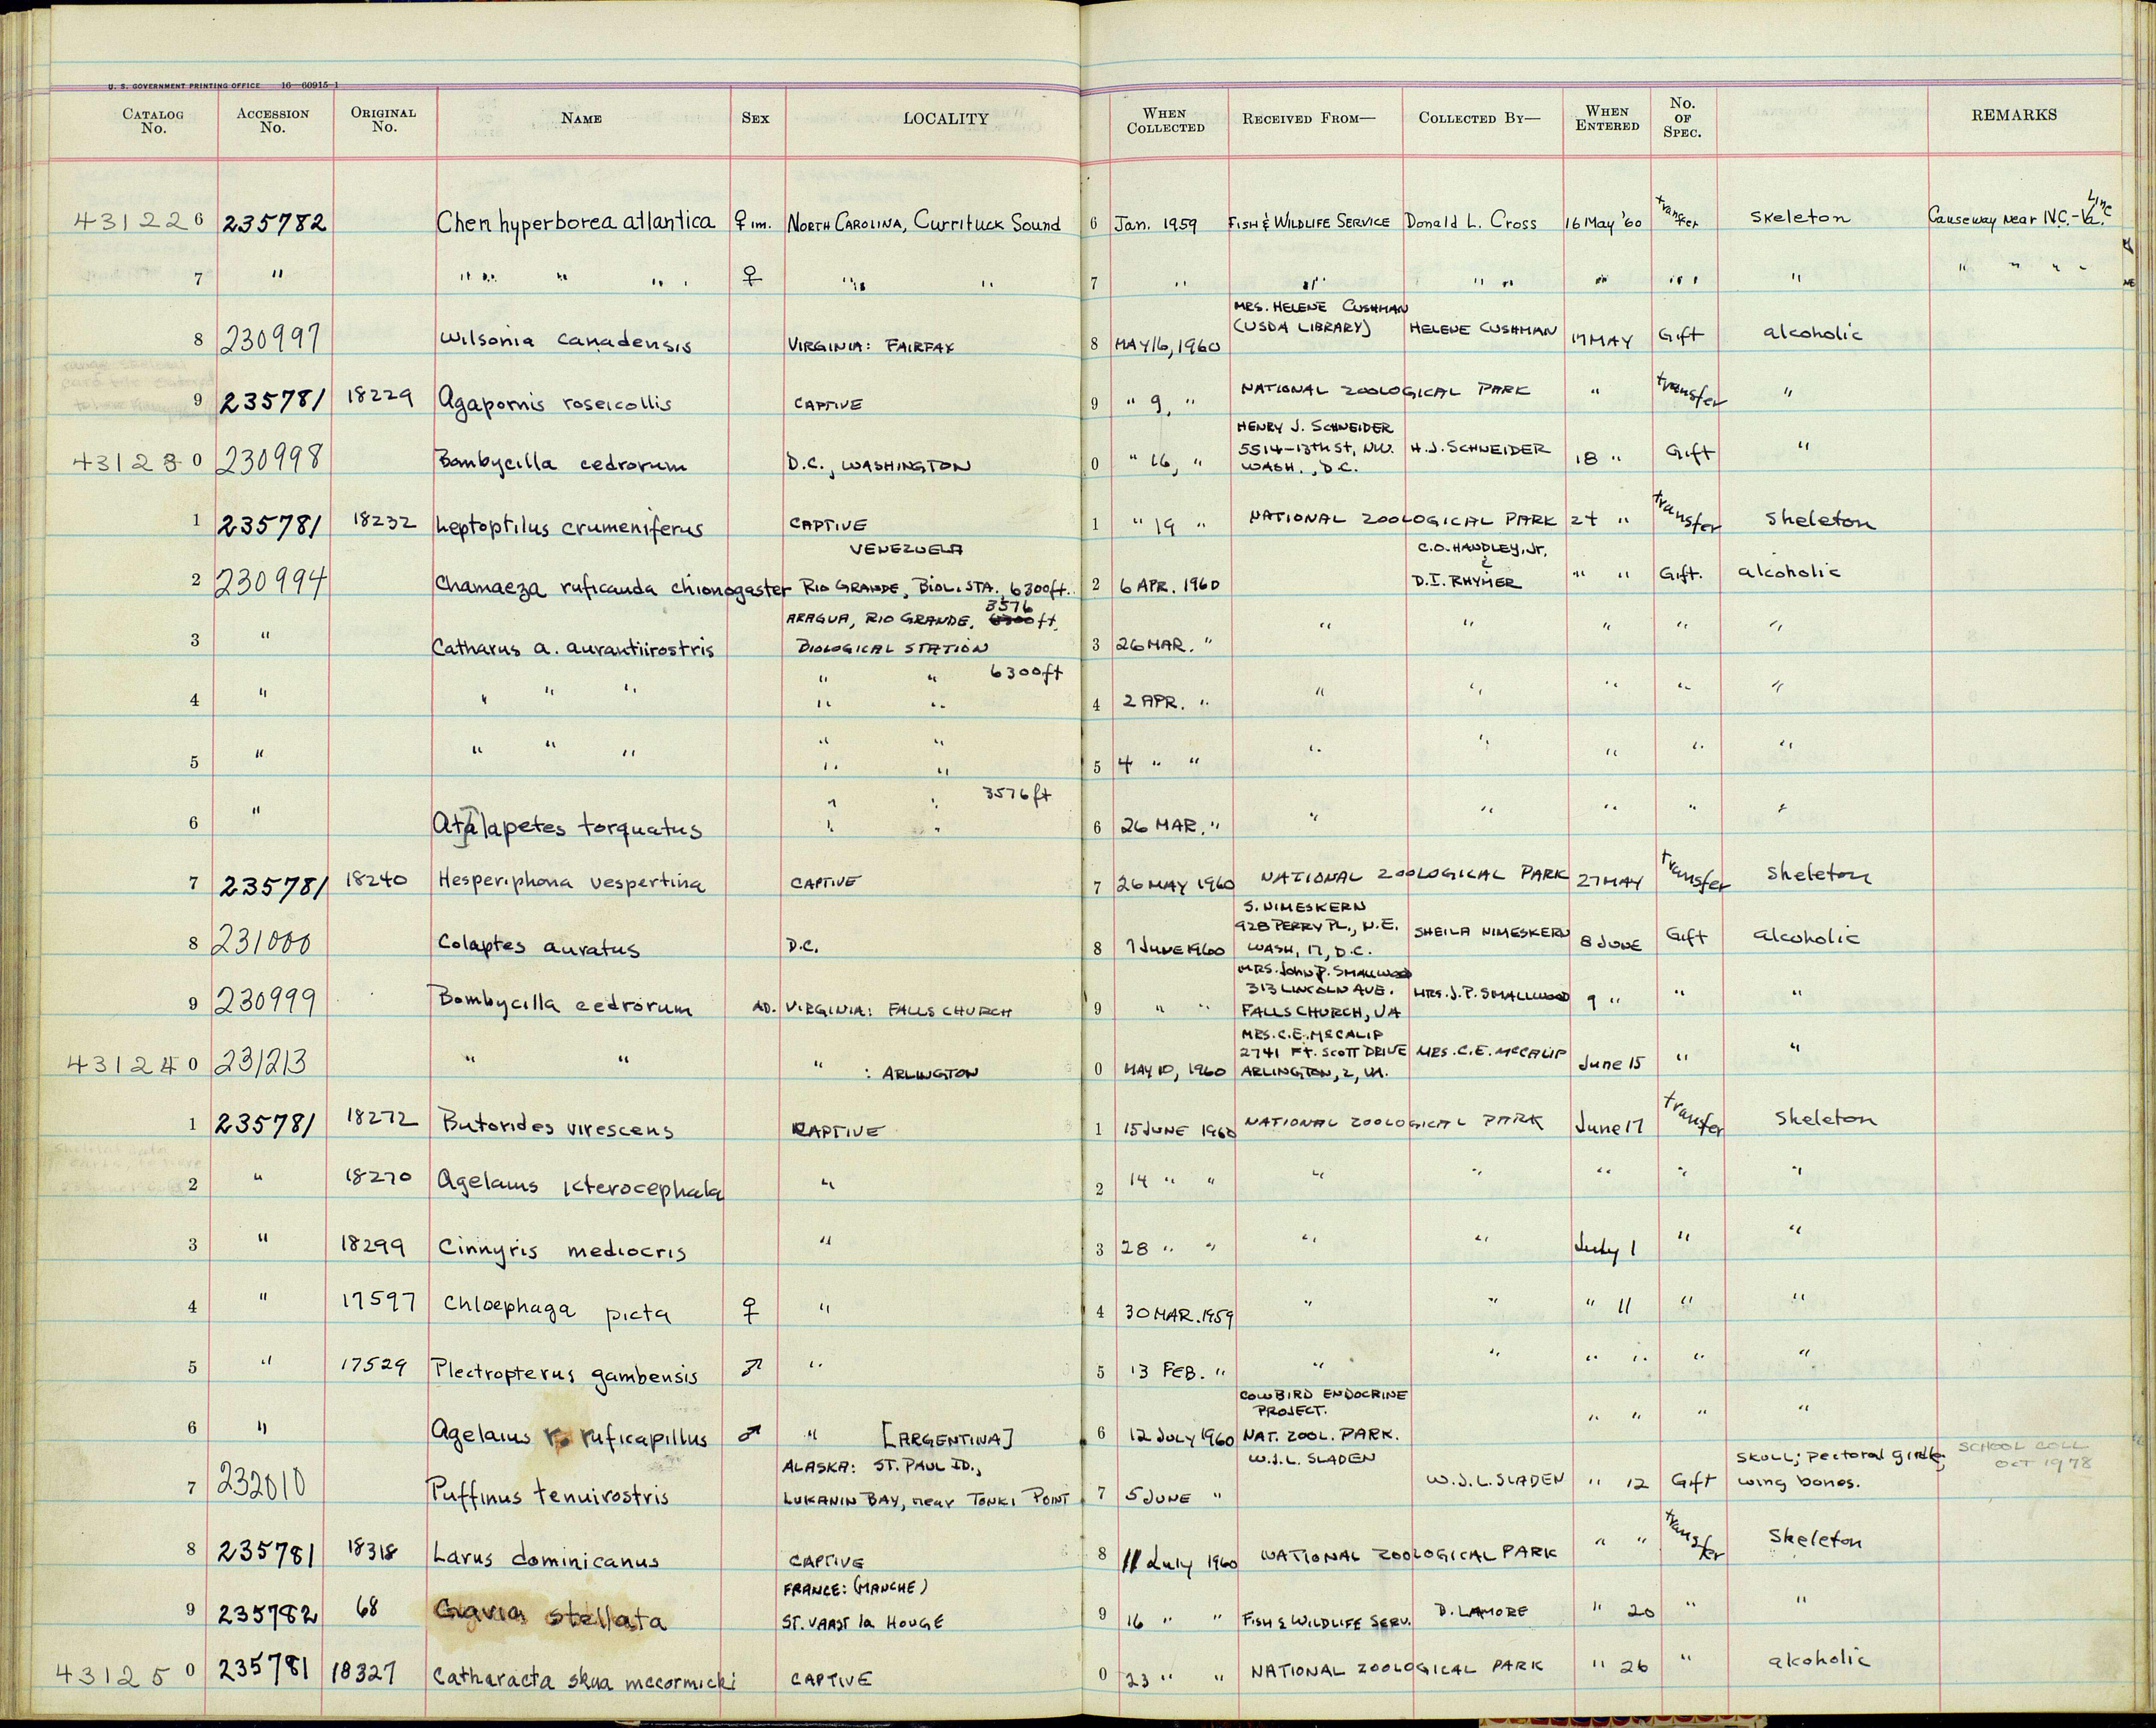 U. S. GOVERNMENT PRINTING OFFICE 16—60915-1
CATALOG No. ACCESSION No. ORIGINAL No. NAME SEX LOCALITY WHEN COLLECTED RECEIVED FROM— COLLECTED BY— WHEN ENTERED No. OF SPEC. REMARKS
431226 235782 Chen hyperborea atlantica ♀ im. NORTH CAROLINA, Currituck Sound 6 Jan. 1959 FISH & WILDLIFE SERVICE Donald L. Cross 16 May '60 transfer skeleton Causeway near N.C.-Va. Line
7 " " " " " ♀ " " 7 " " " " " " " " " " "
8 230997 Wilsonia canadensis VIRGINIA: FAIRFAX 8 MAY 16, 1960 MRS. HELENE CUSHMAN (USDA LIBRARY) HELENE CUSHMAN 17 MAY Gift alcoholic
9 235781 18229 Agapornis roseicollis CAPTIVE 9 " 9, " NATIONAL ZOOLOGICAL PARK " transfer "
431230 230998 Bombycilla cedrorum D.C., WASHINGTON 0 " 16, " HENRY J. SCHNEIDER 5514-13th St, NW. WASH., D.C. H.J. SCHNEIDER 18 " Gift "
1 235781 18232 Leptoptilus crumeniferus CAPTIVE 1 " 19 " NATIONAL ZOOLOGICAL PARK 24 " transfer skeleton
2 230994 Chamaeza ruficauda chionogaster VENEZUELA RIO GRANDE, BIOL. STA., 6300ft. 2 6 APR. 1960 C.O. HANDLEY, Jr. & D.I. RHYMER " " Gift. alcoholic
3 " Catharus a. aurantiirostris ARAGUA, RIO GRANDE, 3576 6300 ft. BIOLOGICAL STATION 3 26 MAR. " " " " " "
4 " " " " " " 6300ft " " 4 2 APR. " " " " " "
5 " " " " " " " " 5 4 " " " " " " "
6 " Atalapetes torquatus " " 3576 ft " " 6 26 MAR. " " " " " "
7 235781 18240 Hesperiphona vespertina CAPTIVE 7 26 MAY 1960 NATIONAL ZOOLOGICAL PARK 27 MAY transfer skeleton
8 231000 Colaptes auratus D.C. 8 7 JUNE 1960 S. NIMESKERN 928 PERRY PL., N.E. WASH, 17, D.C. SHEILA NIMESKERN 8 JUNE Gift alcoholic
9 230999 Bombycilla cedrorum AD. VIRGINIA: FALLS CHURCH 9 " " MRS. John P. SMALLWOOD 313 LINCOLN AVE. FALLS CHURCH, VA MRS. J.P. SMALLWOOD 9 " " "
431240 231213 " " " : ARLINGTON 0 MAY 10, 1960 MRS. C.E. McCALIP 2741 Ft. SCOTT DRIVE ARLINGTON, 2, VA. MRS. C.E. McCALIP June 15 " "
1 235781 18272 Butorides virescens CAPTIVE 1 15 JUNE 1960 NATIONAL ZOOLOGICAL PARK June 17 transfer skeleton
2 " 18270 Agelaius icterocephala " 2 14 " " " " " " "
3 " 18299 Cinnyris mediocris " 3 28 " " " " July 1 " "
4 " 17597 Chloephaga picta ♀ " 4 30 MAR. 1959 " " " 11 " "
5 " 17529 Plectropterus gambensis ♂ " 5 13 FEB. " " " " " " "
6 " Agelaius r. ruficapillus ♂ " [ARGENTINA] 6 12 July 1960 COWBIRD ENDOCRINE PROJECT. NAT. ZOOL. PARK. " " " "
7 232010 Puffinus tenuirostris ALASKA: ST. PAUL ID., LUKANIN BAY, near TONKI POINT 7 5 JUNE " W.J.L. SLADEN W.J.L. SLADEN " 12 Gift SKULL; pectoral girdle; wing bones. SCHOOL COLL OCT 1978
8 235781 18318 Larus dominicanus CAPTIVE 8 11 July 1960 NATIONAL ZOOLOGICAL PARK " " transfer skeleton
9 235782 68 Gavia stellata FRANCE: (MANCHE) ST. VAAST la HOUGE 9 16 " " FISH & WILDLIFE SERV. D. LAMORE " 20 " "
431250 235781 18327 Catharacta skua mccormicki CAPTIVE 0 23 " " NATIONAL ZOOLOGICAL PARK " 26 " alcoholic